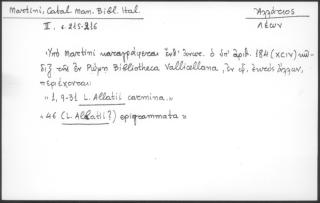 Martini, Catal. Man. Bibl. Ital.
II. σ. 215-216
Ἀλλάτιος
Λέων
Ὑπὸ Martini καταγράφεται ἐνθ' ἀνωτ. ὁ ὑπ' ἀριθ. 184 (XCIV) κῶ-
διξ τῆς ἐν Ῥώμῃ Bibliotheca Vallicellana, ἐν ᾧ, ἐκτὸς ἄλλων,
περιέχονται:
"1, 9-31 L. Allatii carmina."
"46 (L. Allatii?) epigrammata"